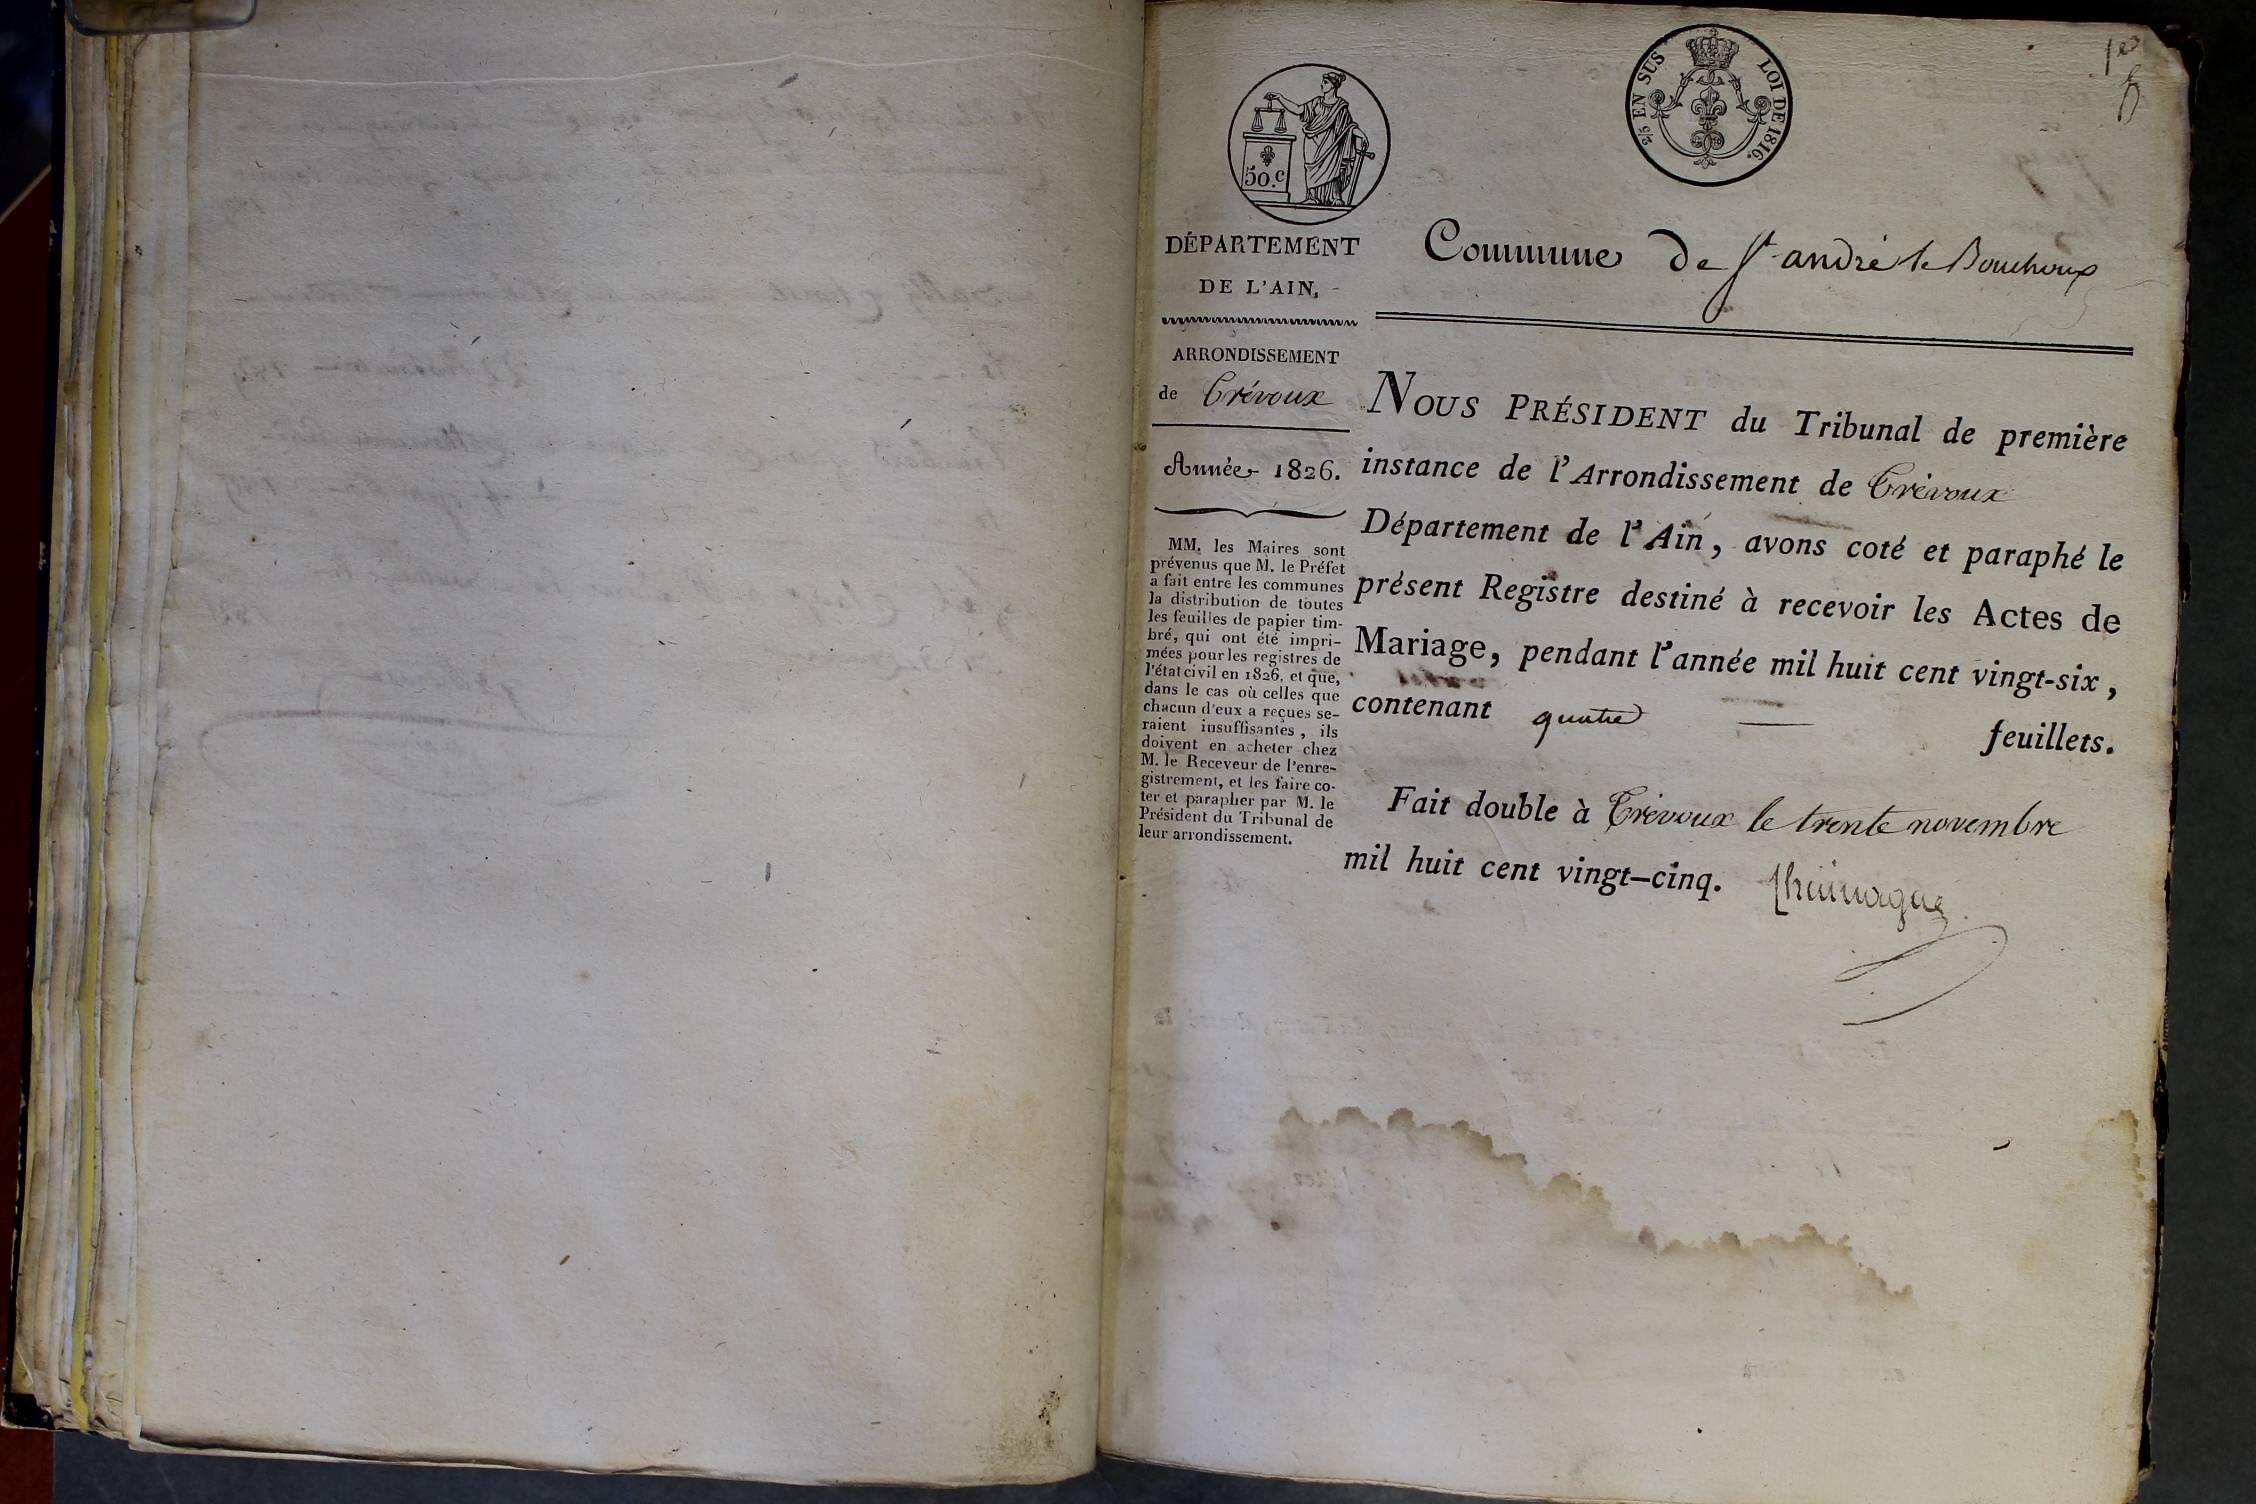 1er
2/5 EN SUS
LOI DE 1816.
50.c
DÉPARTEMENT
DE L'AIN,
ARRONDISSEMENT
de Trévoux
Année 1826.
MM. les Maires sont
prévenus que M. le Préfet
a fait entre les communes
la distribution de toutes
les feuilles de papier tim-
bré, qui ont été impri-
mées pour les registres de
l'état civil en 1826, et que,
dans le cas où celles que
chacun d'eux a reçues se-
raient insuffisantes, ils
doivent en acheter chez
M. le Receveur de l'enre-
gistrement, et les faire co-
ter et parapher par M. le
Président du Tribunal de
leur arrondissement.
Commune de St andré le Bouchoux
NOUS PRÉSIDENT du Tribunal de première
instance de l'Arrondissement de Trévoux
Département de l'Ain, avons coté et paraphé le
présent Registre destiné à recevoir les Actes de
Mariage, pendant l'année mil huit cent vingt-six,
contenant quatre feuillets.
Fait double à Trévoux le trente novembre
mil huit cent vingt-cinq.